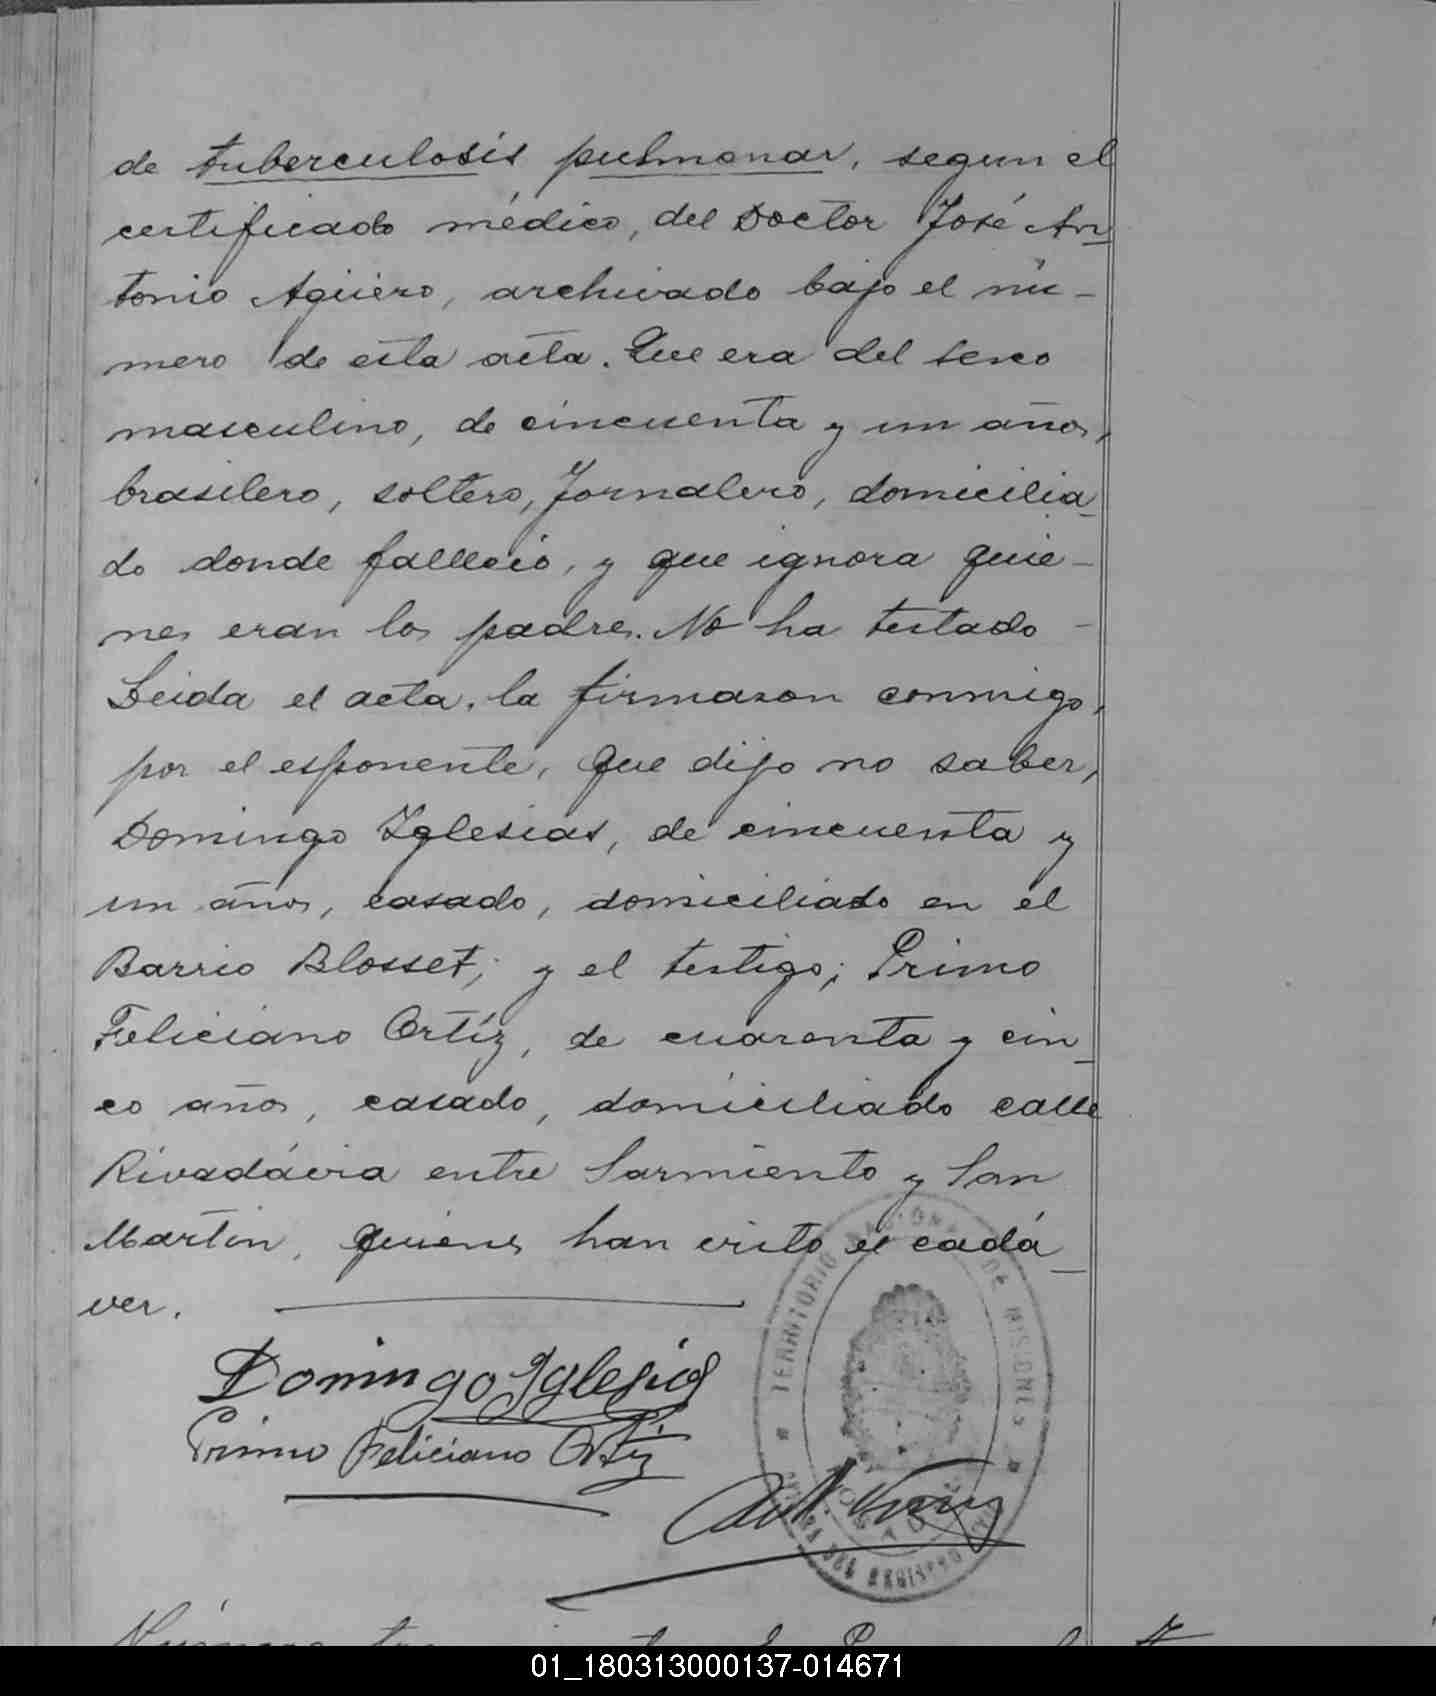 de tuberculosis pulmonar, segun el
certificado médico, del Doctor José An
tonio Agüero, archivado bajo el nú-
mero de esta acta. Que era del sexo
masculino, de cincuenta y un años,
brasilero, soltero, Jornalero, domicilia
do donde falleció, y que ignora quie-
nes eran los padres. No ha testado -
Leida el acta, la firmaron conmigo,
por el esponente, que dijo no saber,
Domingo Iglesias, de cincuenta y
un años, casado, domiciliado en el
Barrio Blosset; y el testigo; Primo
Feliciano Ortíz, de cuarenta y cin
co años, casado, domiciliado calle
Rivadávia entre Sarmiento y San
Martin, quienes han visto el cadá
ver.
Domingo Iglesias
Primo Feliciano Ortiz
TERRITORIO NACIONAL DE MISIONES
POSADAS
OFICINA DEL REGISTRO CIVIL
01_180313000137-014671